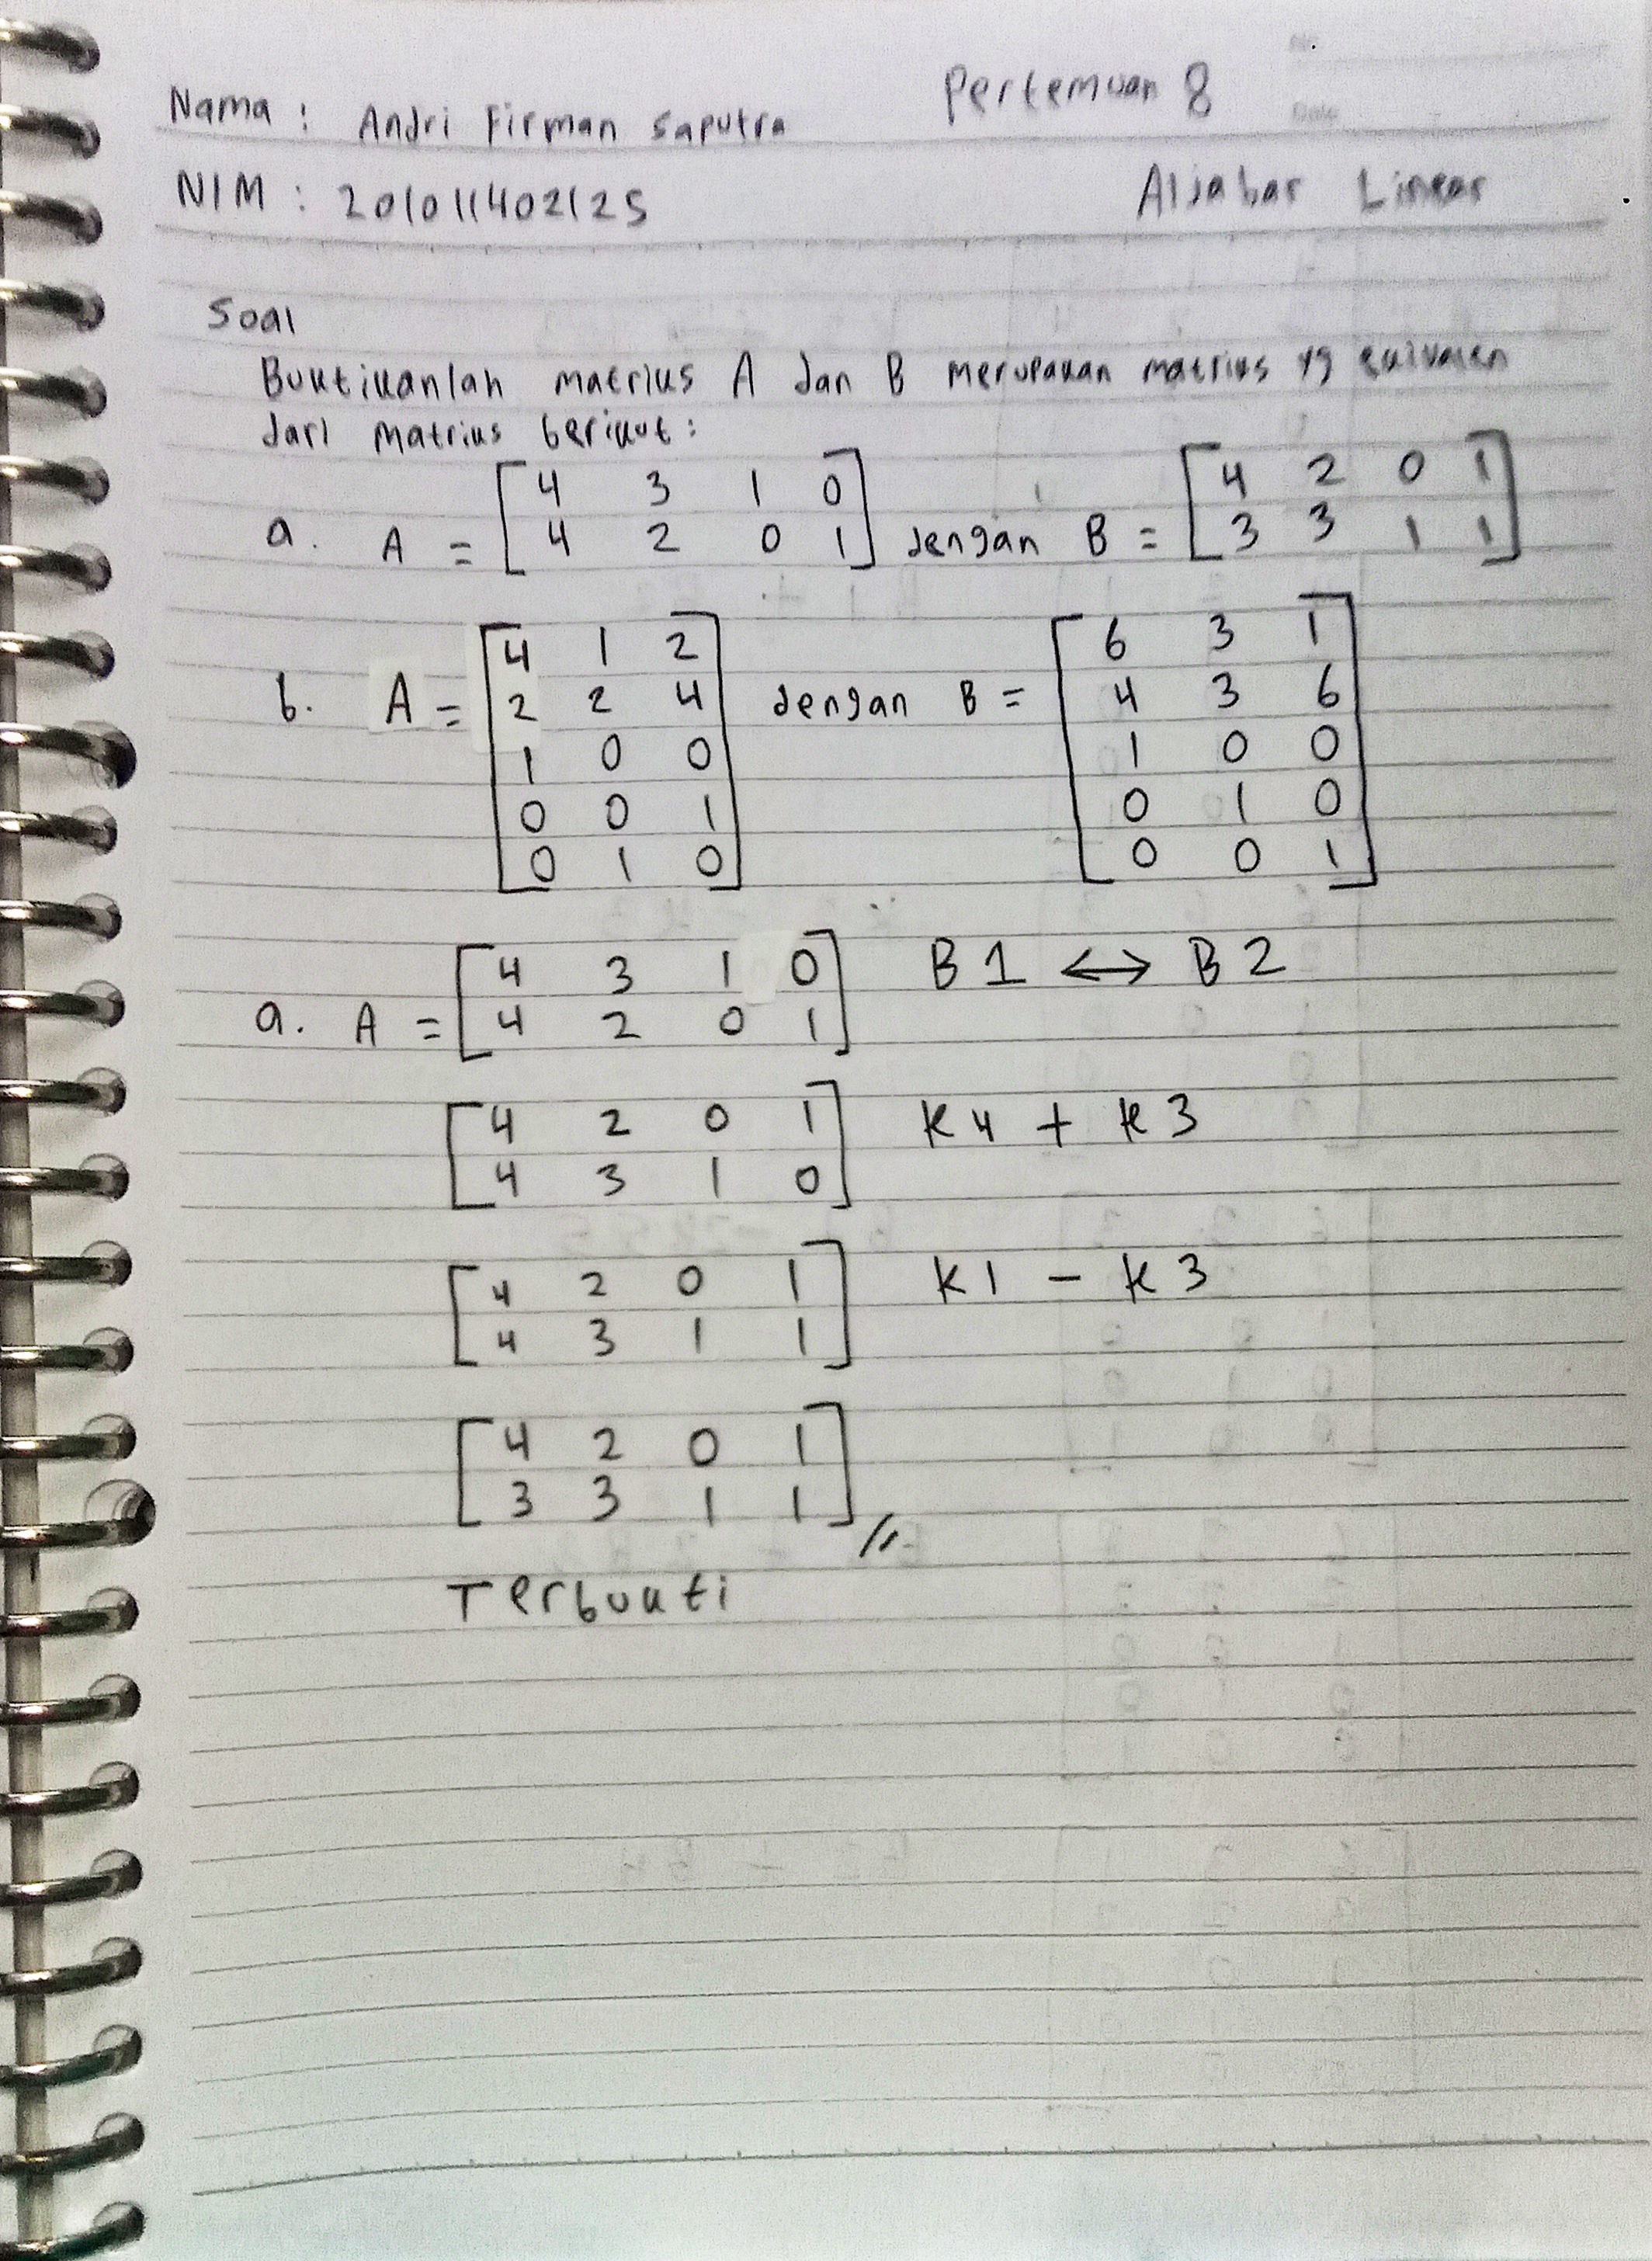 Pertemuan 8
Nama : Andri Firman Saputra
NIM : 201011402125
Aljabar Linear
Soal
Buktikanlah matriks A dan B merupakan matriks yg ekivalen
dari matriks berikut :
a. A = [4 3 1 0
4 2 0 1] dengan B = [4 2 0 1
3 3 1 1]
b. A = [4 1 2
2 2 4
1 0 0
0 0 1
0 1 0] dengan B = [6 3 1
4 3 6
1 0 0
0 1 0
0 0 1]
a. A = [4 3 1 0
4 2 0 1] B1 ↔ B2
[4 2 0 1
4 3 1 0] K4 + K3
[4 2 0 1
4 3 1 1] K1 - K3
[4 2 0 1
3 3 1 1] //
Terbukti